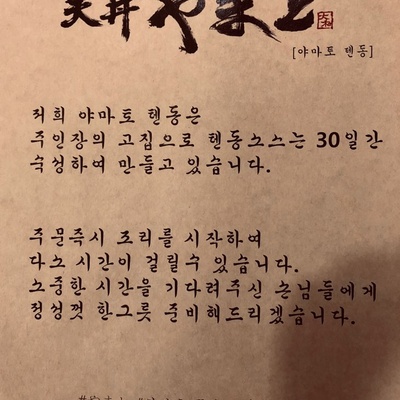 天丼 やまと
[야마토 텐동]
저희 야마토 텐동은
주인장의 고집으로 텐동소스는 30일간
숙성하여 만들고 있습니다.
주문즉시 조리를 시작하여
다소 시간이 걸릴수 있습니다.
소중한 시간을 기다려주신 손님들에게
정성껏 한그릇 준비해드리겠습니다.